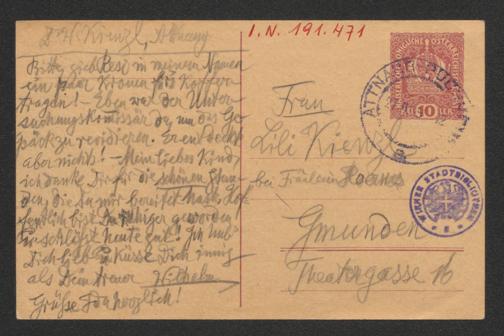 I.N. 191.471
Dr W Kienzl, Attnang
Bitte, gieb Resi in meinem Namen
ein paar Kronen fürs Koffer-
tragen! – Eben war der Unter-
suchungskommissär da, um das Ge-
päck zu revidieren. Er entdeckte
aber nichts! – Mein liebes Kind,
ich danke Dir für die schönen Stun-
den, die Du mir bereitet hast. Hof-
fentlich bist Du ruhiger geworden
u. schläfst heute gut! Ich
Dich lieb u. küsse Dich innig
als Dein treuer Wilhelm
Grüße herzlich!
ATTNANG-PUCHHEIM
10 HELLER
Frau
Lili Kienzl
bei Fräulein
Gmunden
Theatergasse 16
WIENER STADTBIBLIOTHEK